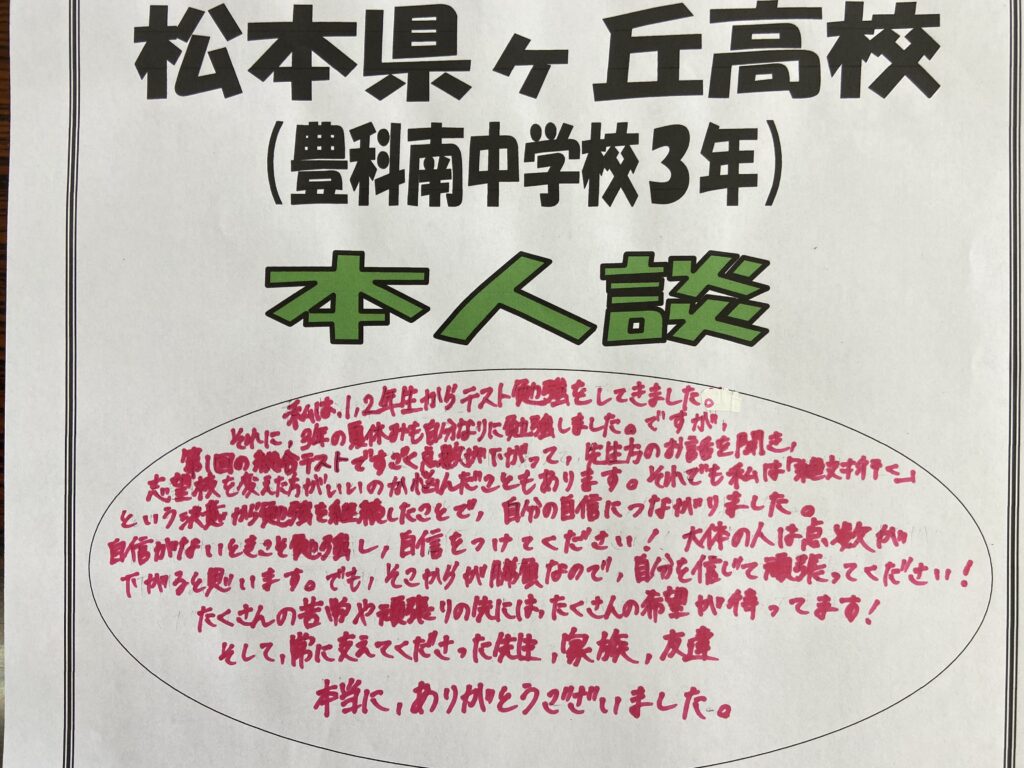 松本県ヶ丘高校
（豊科南中学校３年）
本人談
私は、1,2年生からテスト勉強をしてきました。
それに、3年の夏休みも自分なりに勉強しました。ですが、
第1回の総合テストですごく点数が下がって、先生方のお話を聞き、
志望校を変えた方がいいのか悩んだこともあります。それでも私は「絶対行く」
という決意から勉強を継続したことで、自分の自信につながりました。
自信がないときこそ勉強し、自信をつけてください！ 大体の人は点数が
下がると思います。でも、そこからが勝負なので、自分を信じて頑張ってください！
たくさんの苦悩や頑張りの先には、たくさんの希望が待ってます！
そして、常に支えてくださった先生、家族、友達
本当に、ありがとうございました。